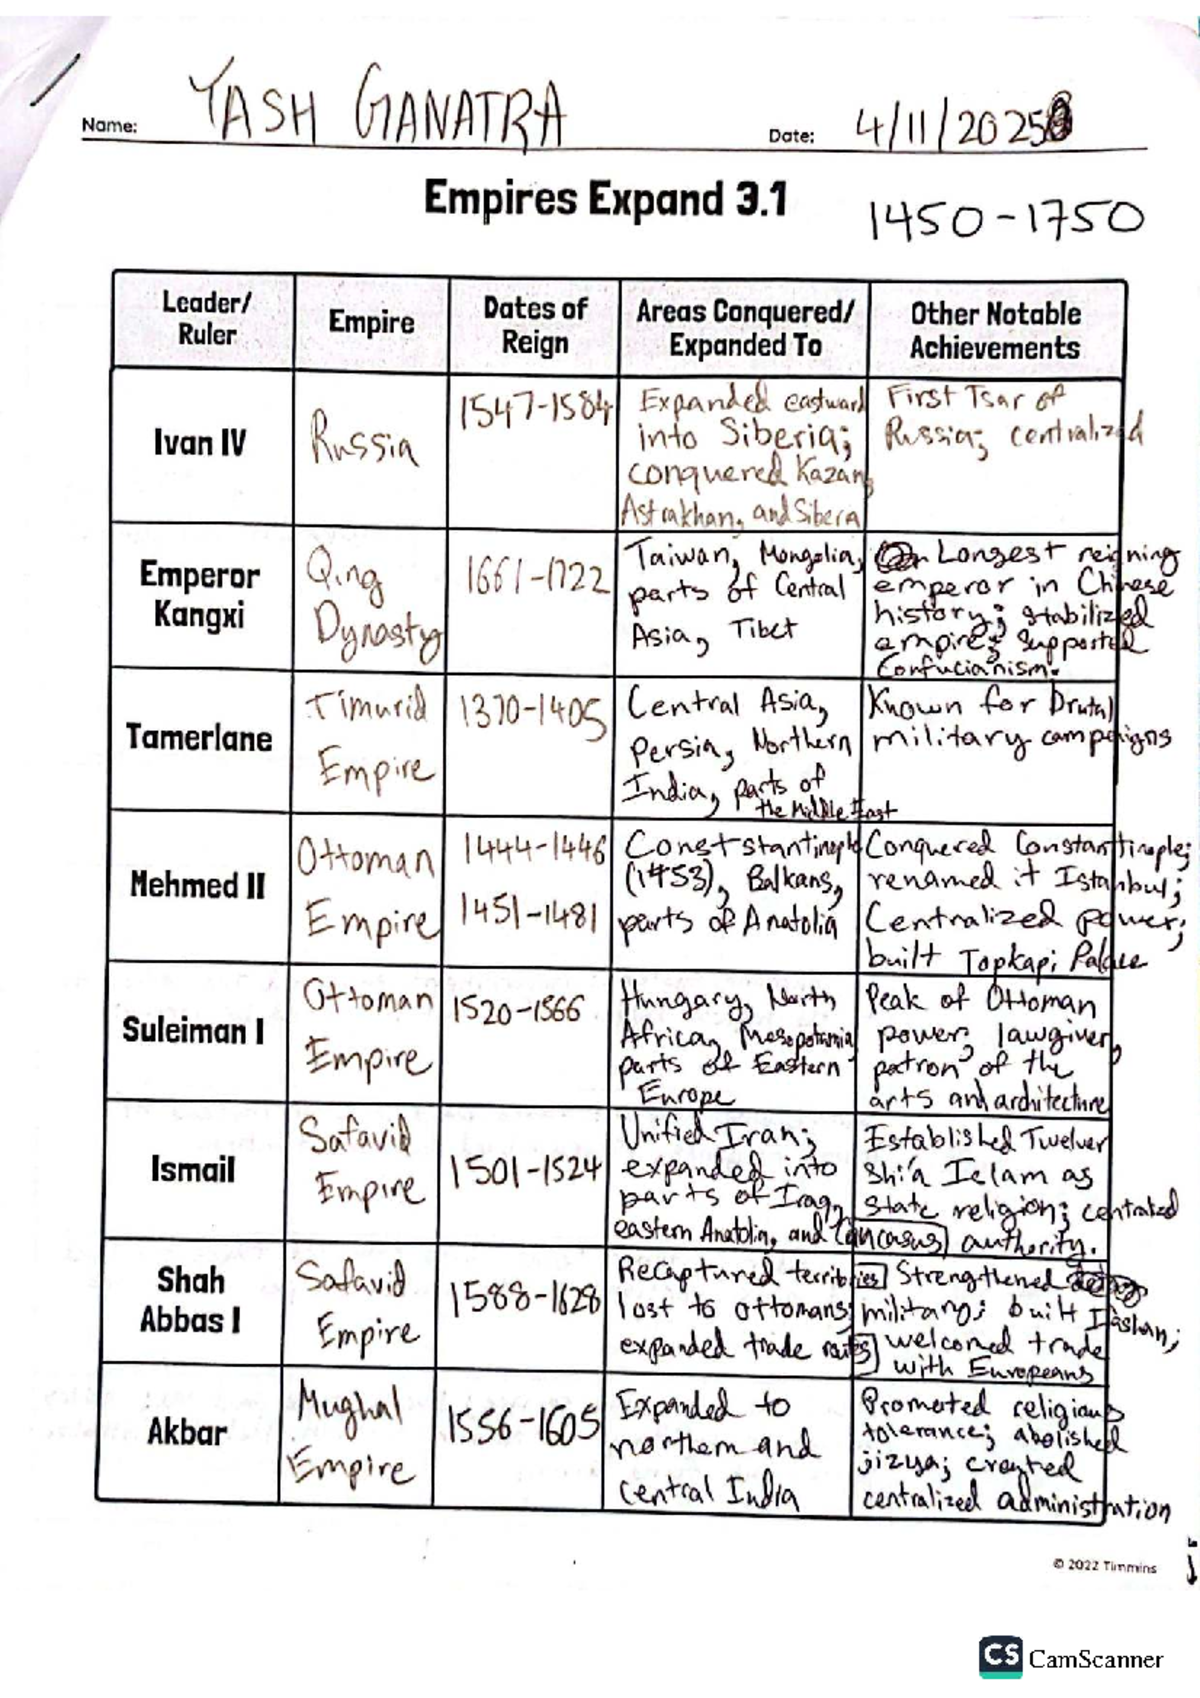 Name: YASH GANATRA Date: 4/11/2025
Empires Expand 3.1
1450-1750
Leader/
Ruler
Empire
Dates of
Reign
Areas Conquered/
Expanded To
Other Notable
Achievements
Ivan IV
Russia
1547-1584
Expanded eastward
into Siberia;
conquered Kazan,
Astrakhan, and Sibera
First Tsar of
Russia; centralized
Emperor
Kangxi
Qing
Dynasty
1661-1722
Taiwan, Mongolia,
parts of Central
Asia, Tibet
Longest reigning
emperor in Chinese
history; stabilized
empire; supported
Confucianism.
Tamerlane
Timurid
Empire
1370-1405
Central Asia,
Persia, Northern
India, parts of
the Middle East
Known for brutal
military campaigns
Mehmed II
Ottoman
Empire
1444-1446
1451-1481
Conststantinople
(1453), Balkans,
parts of Anatolia
Conquered Constantinople;
renamed it Istanbul;
Centralized power;
built Topkapi Palace
Suleiman I
Ottoman
Empire
1520-1566
Hungary, North
Africa, Mesopotamia
parts of Eastern
Europe
Peak of Ottoman
power; lawgiver,
patron of the
arts and architecture
Ismail
Safavid
Empire
1501-1524
Unified Iran;
expanded into
parts of Iraq,
eastern Anatolia, and Caucasus
Established Twelver
Shi'a Islam as
state religion; centrated
authority.
Shah
Abbas I
Safavid
Empire
1588-1628
Recaptured territories
lost to Ottomans;
expanded trade routes
Strengthened
military; built Isfashan;
welcomed trade
with Europeans
Akbar
Mughal
Empire
1556-1605
Expanded to
northern and
central India
Promoted religious
tolerance; abolished
jizya; created
centralized administration
© 2022 Timmins
CS CamScanner